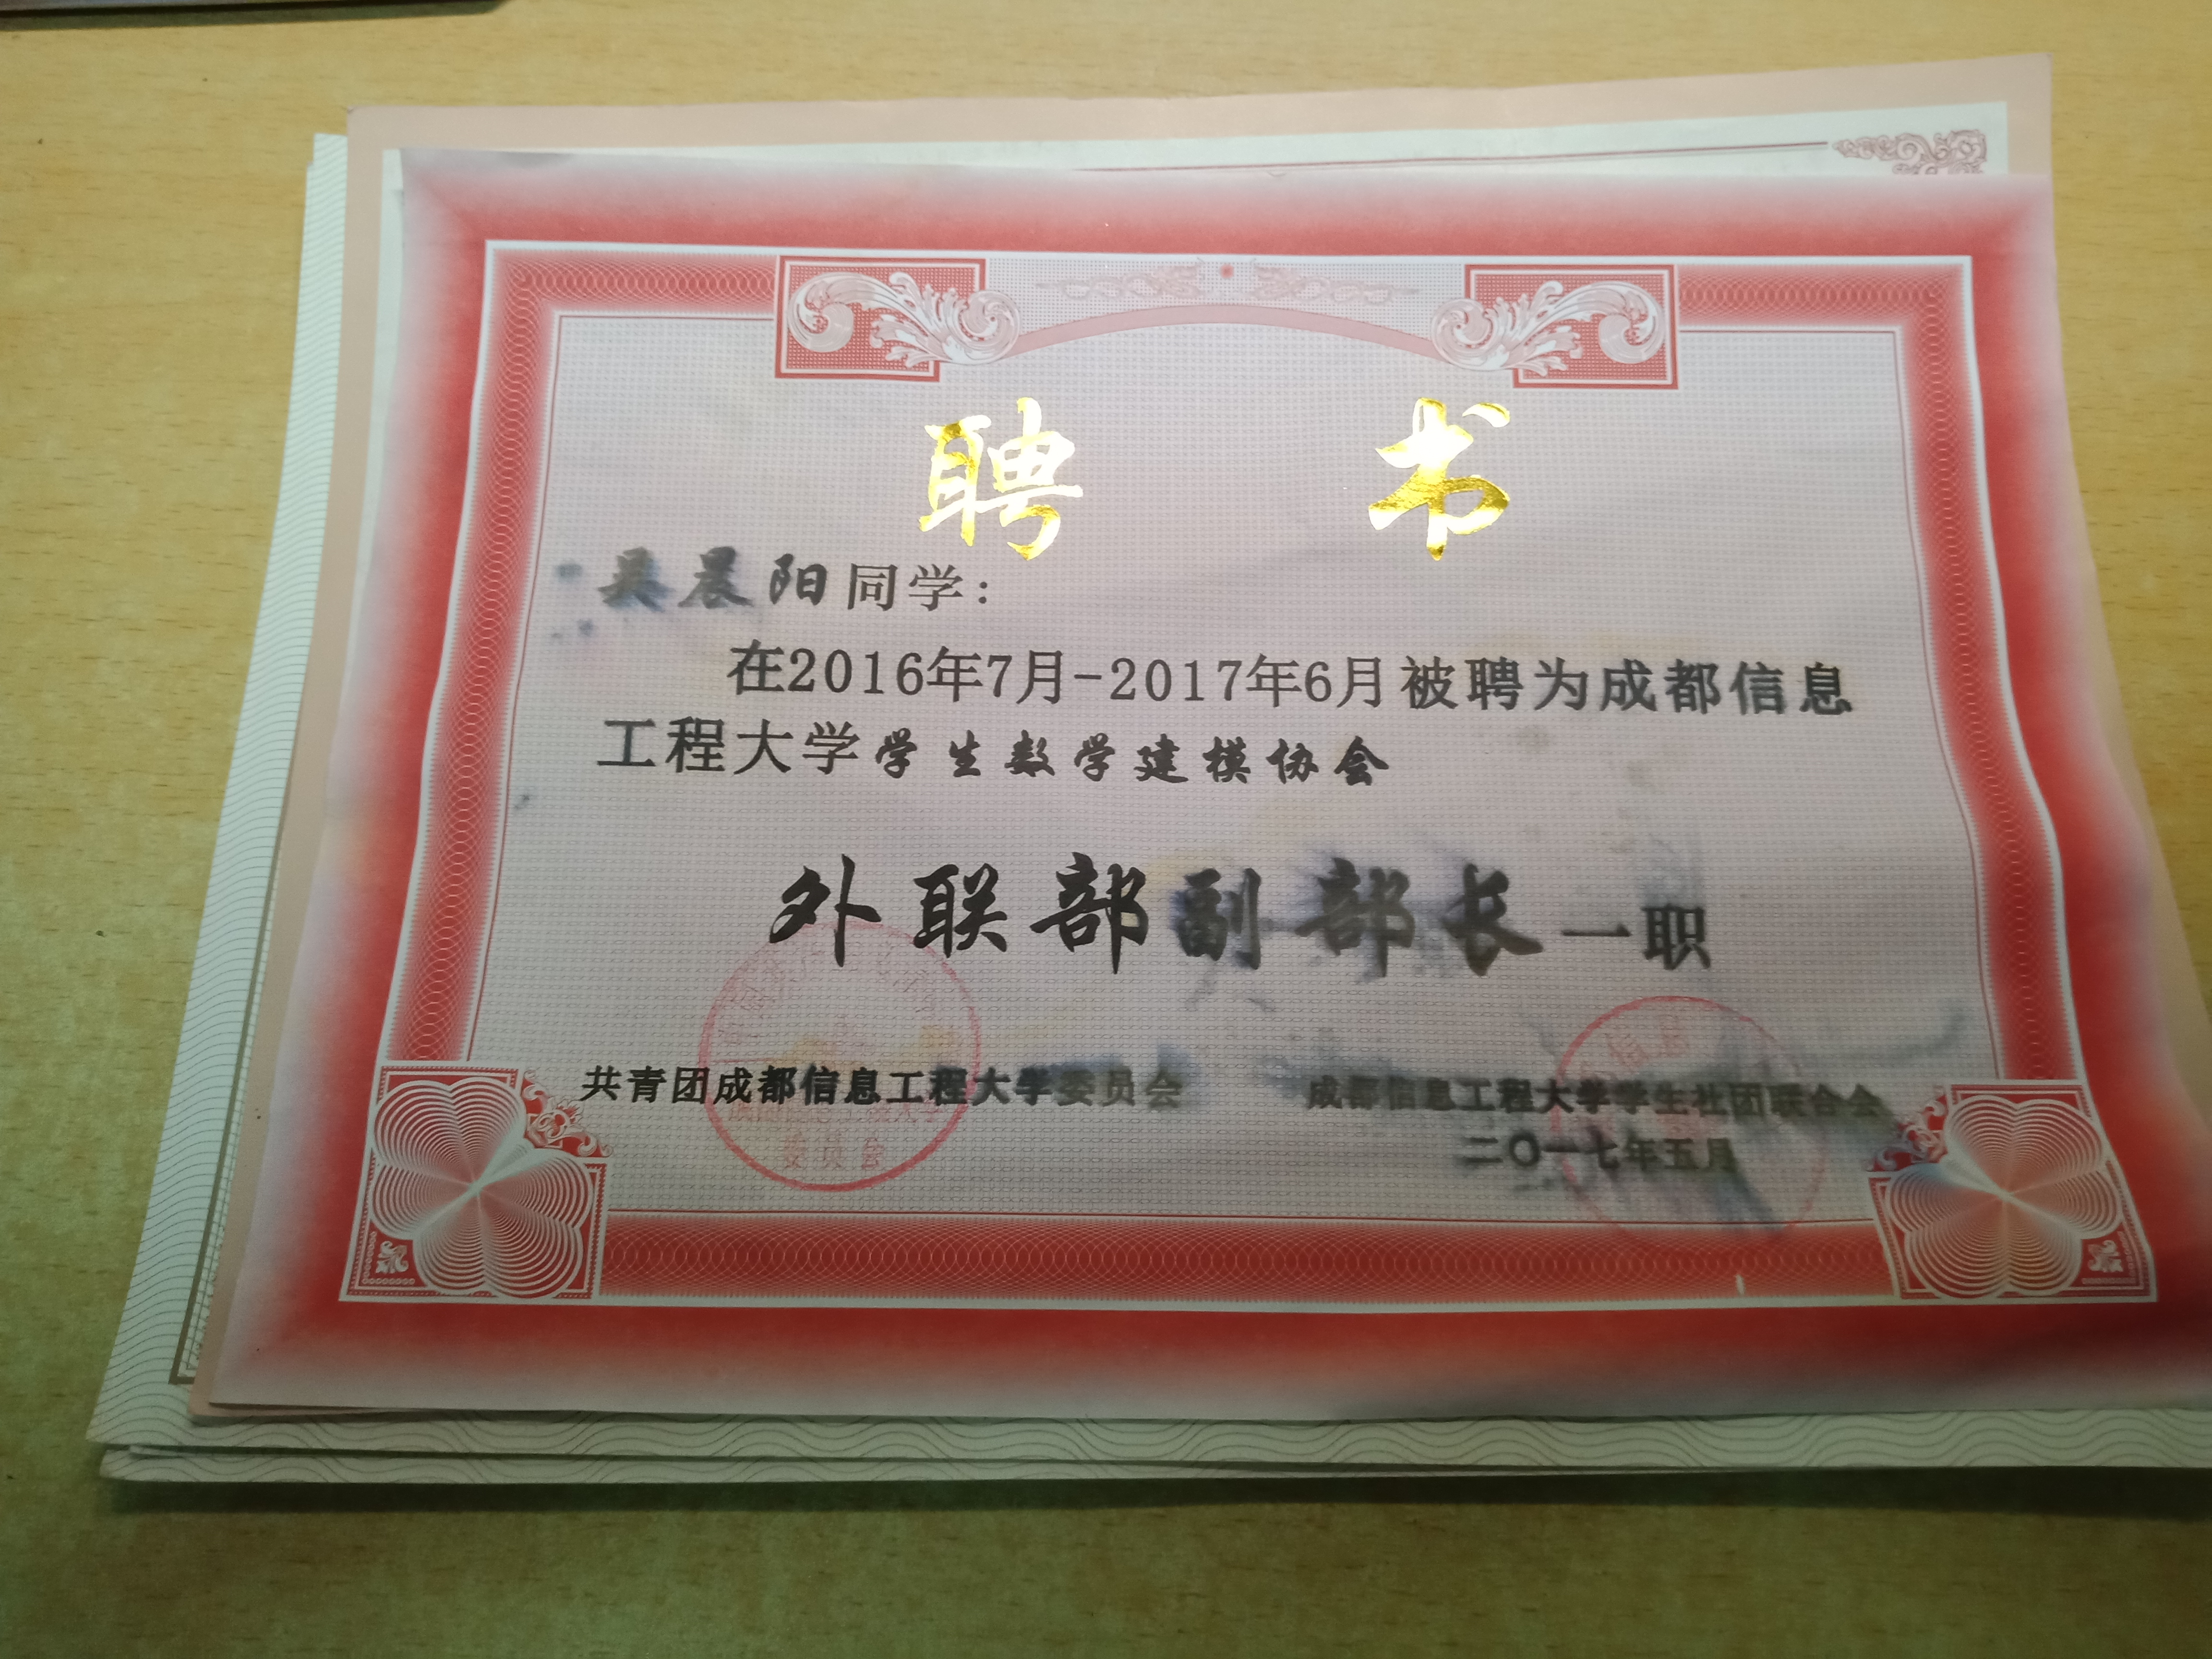 聘 书
吴晨阳同学：
在2016年7月-2017年6月被聘为成都信息
工程大学学生数学建模协会
外联部副部长一职
共青团成都信息工程大学委员会 成都信息工程大学学生社团联合会
二〇一七年五月
委员会